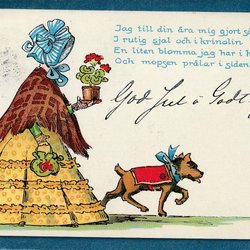 Jag till din ära mig gjort
I rutig sjal och i krinolin
En liten blomma jag har i
Och mopsen prålar i siden
God Jul o Godt